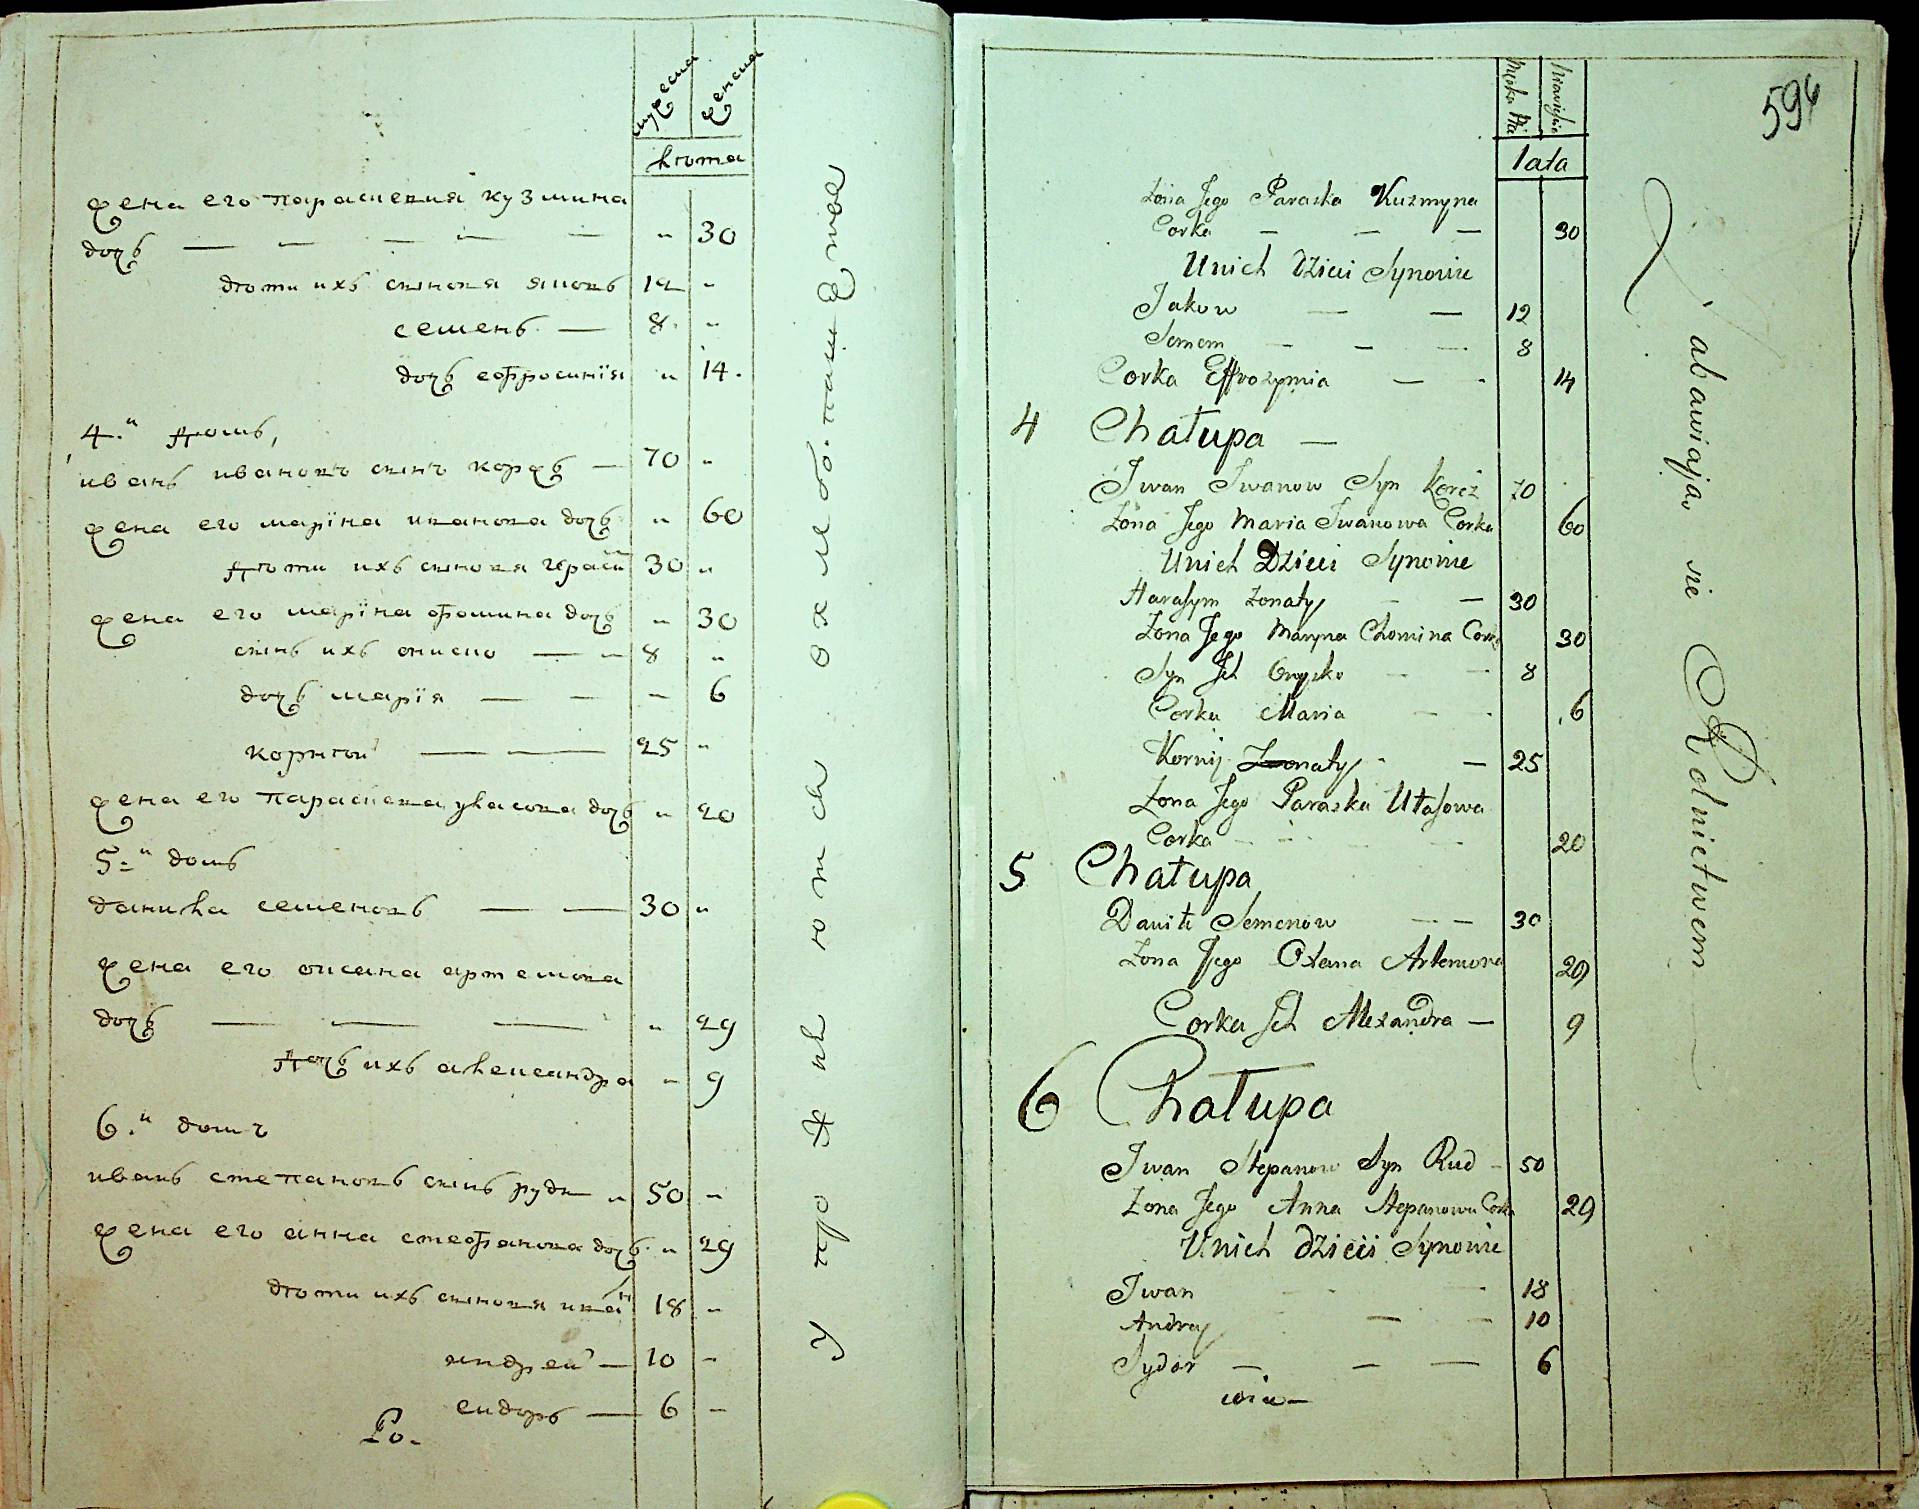 мужеска женска
лѣта
жена его параскевия кузмина
дочь — — — — — " 30
дѣти ихъ сыновя яковъ 12 "
семенъ — 8 "
дочь ефросинїя " 14
4.й домъ,
иванъ ивановъ сынъ коржъ — 70 "
жена его марїна иванова дочь " 60
дѣти ихъ сыновя гераси 30 "
жена его марїна фомина дочь " 30
сынъ ихъ ониско — — 8 "
дочь марїя — — — 6
корнѣй — — 25 "
жена его параскева уласова дочь " 20
5.й домъ
данила семеновъ — — 30 "
жена его оксана артемова
дочь — — — " 29
дочь ихъ александра " 9
6.й домъ
иванъ степановъ сынъ рудь " 50 "
жена его анна стефанова дочь " 29
дѣти ихъ сыновя иван 18 "
андрей — 10 "
сидоръ — 6 "
Ро.
упражняются хлебопашеством
594
Męska Płci
lata
Żona Jego Paraska Kuzmyna
Corka — — — 30
Unich Dzieci Synowie
Jakow — — 12
Semem — — — 8
Corka Effrozymia — - 14
4 Chałupa —
Iwan Iwanow Syn Korez 70
Żona Jego Maria Iwanowa Corka 60
Unich Dzieci Synowie
Harasym żonaty — — 30
Żona Jego Maryna Chomina Corka 30
Syn Ich Onysko — — 8
Corka Maria — - 6
Kornij Żonaty - — 25
Żona Jego Paraska Ułasowa
Corka — - — 20
5 Chałupa
Daniło Semenow — — 30
Żona Jego Oxana Artemowa 29
Corka Ich Alexandra — 9
6 Chałupa
Iwan Stepanow Syn Rud - 50
Żona Jego Anna Stepanowa Corka 29
Unich Dzieci Synowie
Iwan - - 18
Andrej — - 10
Sydor — — — 6
Zabawiaja sie Rolnictwem